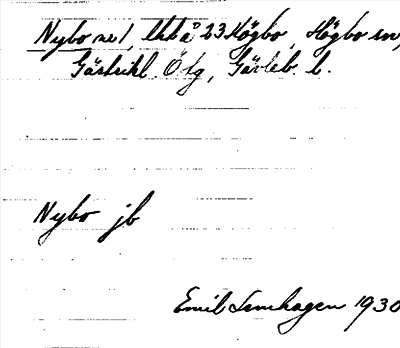 Nybo nr 1, lht å 23 Högbo, Högbo sn,
Gästrikl. Ö tg, Gävleb. l.
Nybo jb
Emil Lernhagen 1930